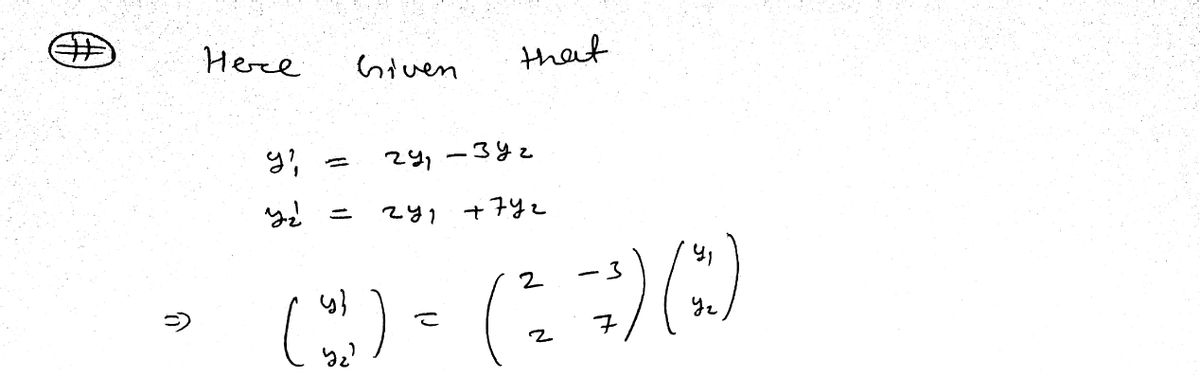 # Here Given that
y₁' = 2y₁ - 3y₂
y₂' = 2y₁ + 7y₂
⇒ (y₁' y₂') = (2 -3 2 7) (y₁ y₂)